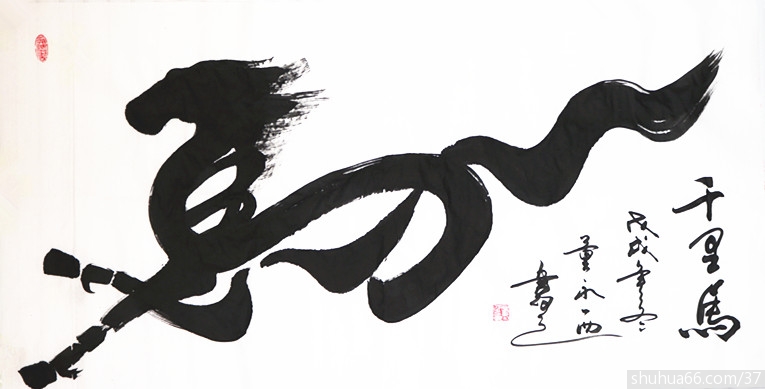 馬
千里馬
戊戌年冬
董永西
shuhua66.com/37